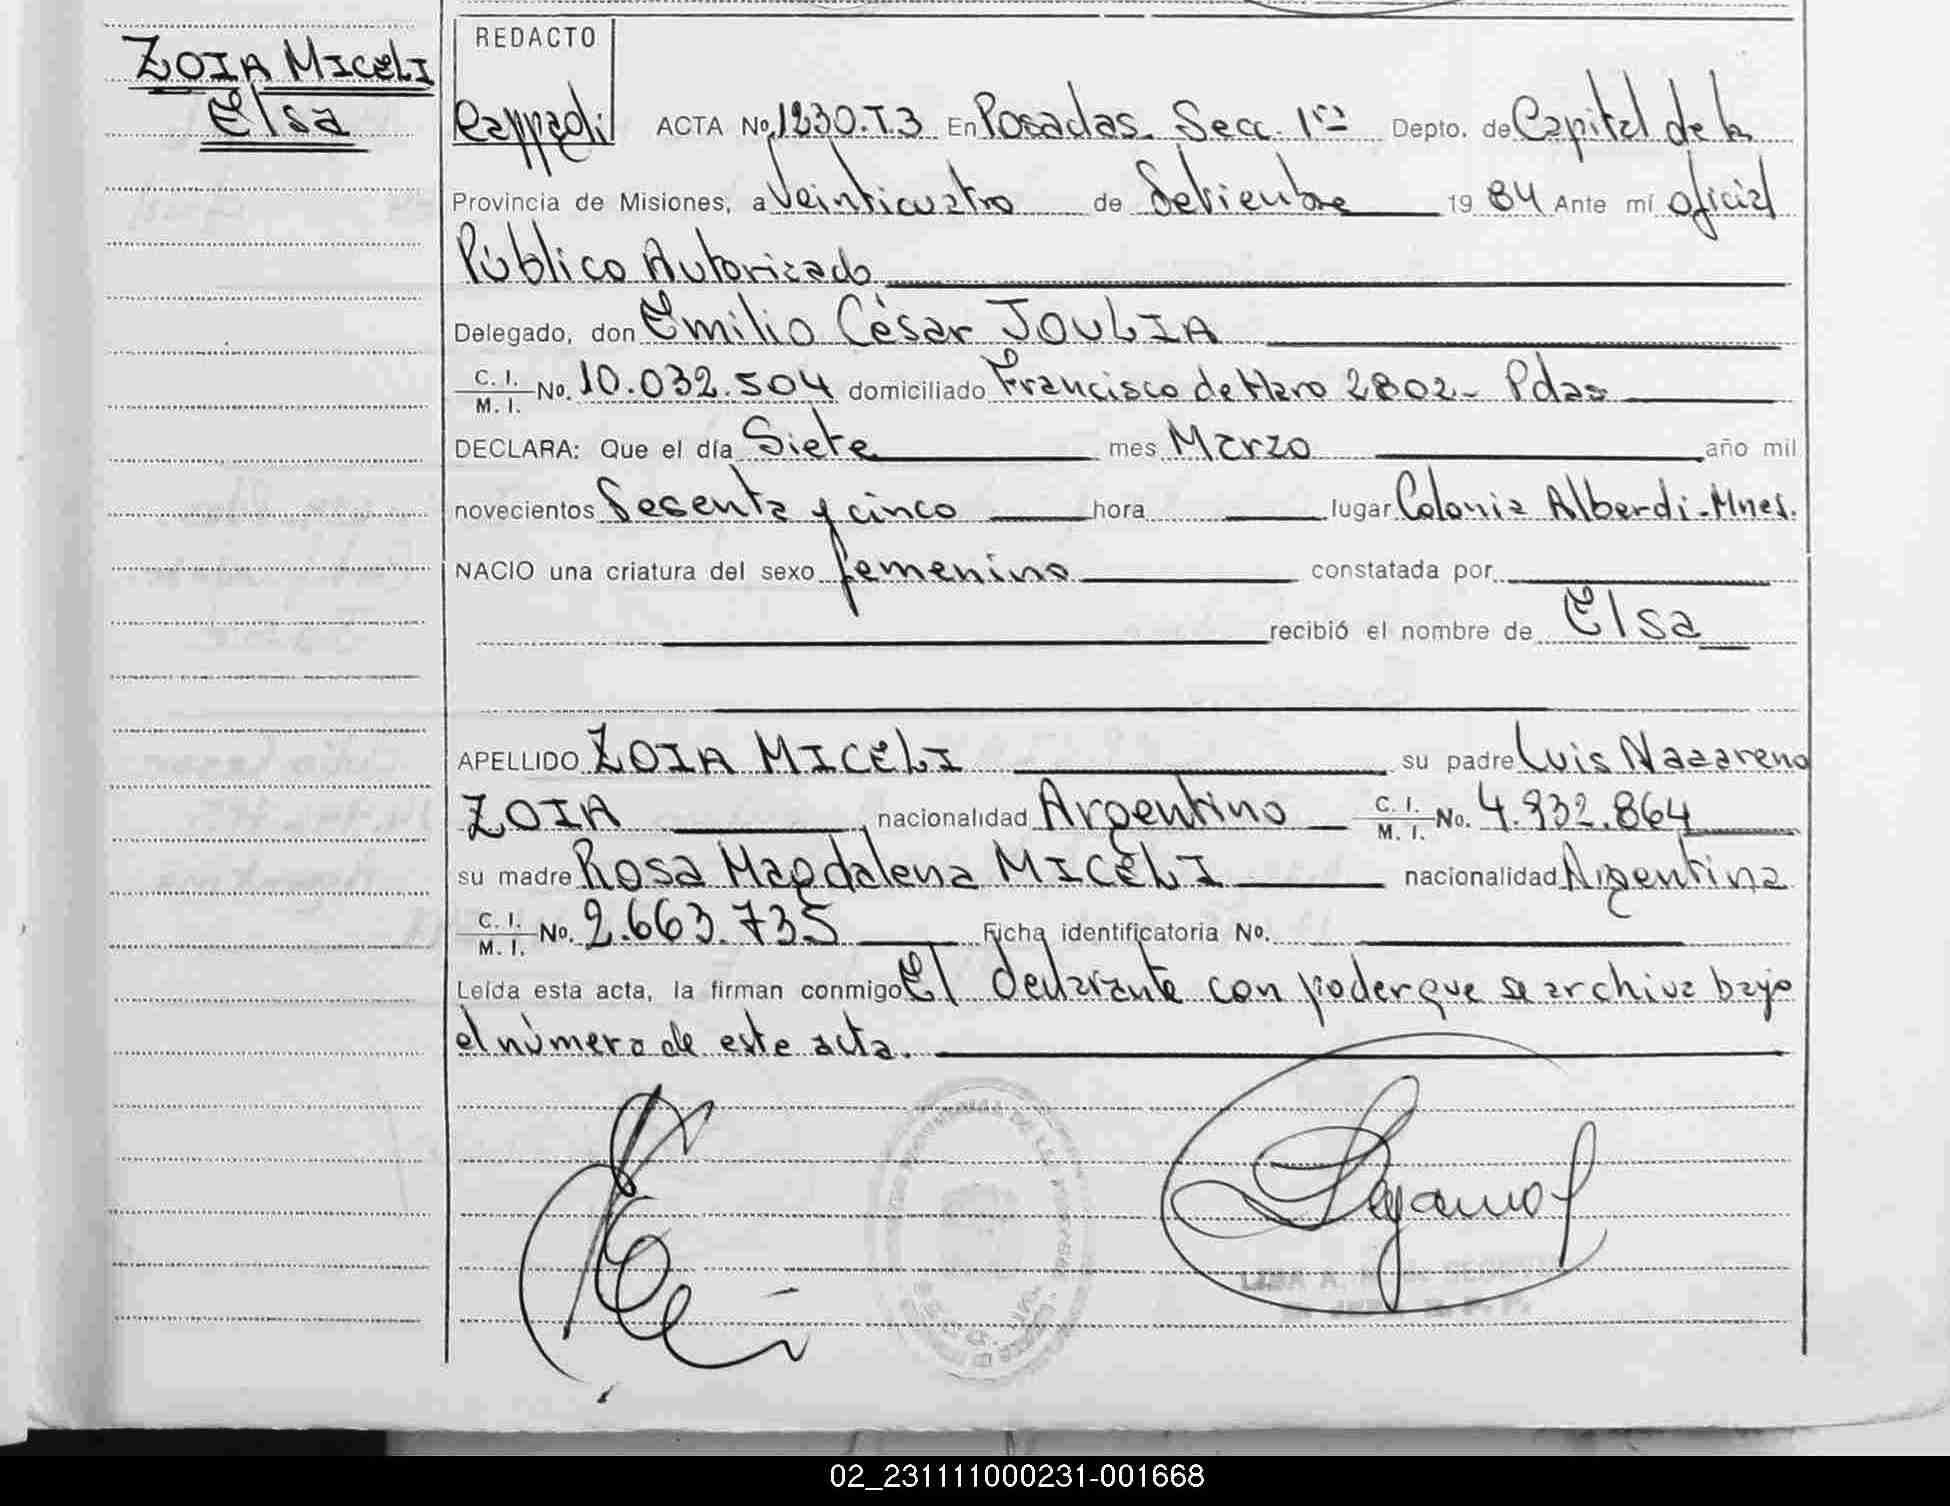 ZOIA MICELI
Elsa
REDACTO
ACTA No. 1230.T.3 En Posadas. Secc. 1ra Depto. de Capital de la
Provincia de Misiones, a Veinticuatro de Setiembre 1984 Ante mí oficial
Público Autorizado
Delegado, don Emilio César JOULIA
C. I. M. I. No. 10.032.504 domiciliado Francisco de Haro 2802- Pdas
DECLARA: Que el día Siete mes Marzo año mil
novecientos Sesenta y cinco hora lugar Colonia Alberdi-Mnes.
NACIO una criatura del sexo femenino constatada por
recibió el nombre de Elsa
APELLIDO ZOIA MICELI su padre Luis Nazareno
ZOIA, nacionalidad Argentino C. I. M. I. No. 4.932.864
su madre Rosa Magdalena MICELI nacionalidad Argentina
C. I. M. I. No. 2.663.735 Ficha identificatoria No.
Leída esta acta, la firman conmigo El declarante con poder que se archiva bajo
el número de este acta.
02_231111000231-001668